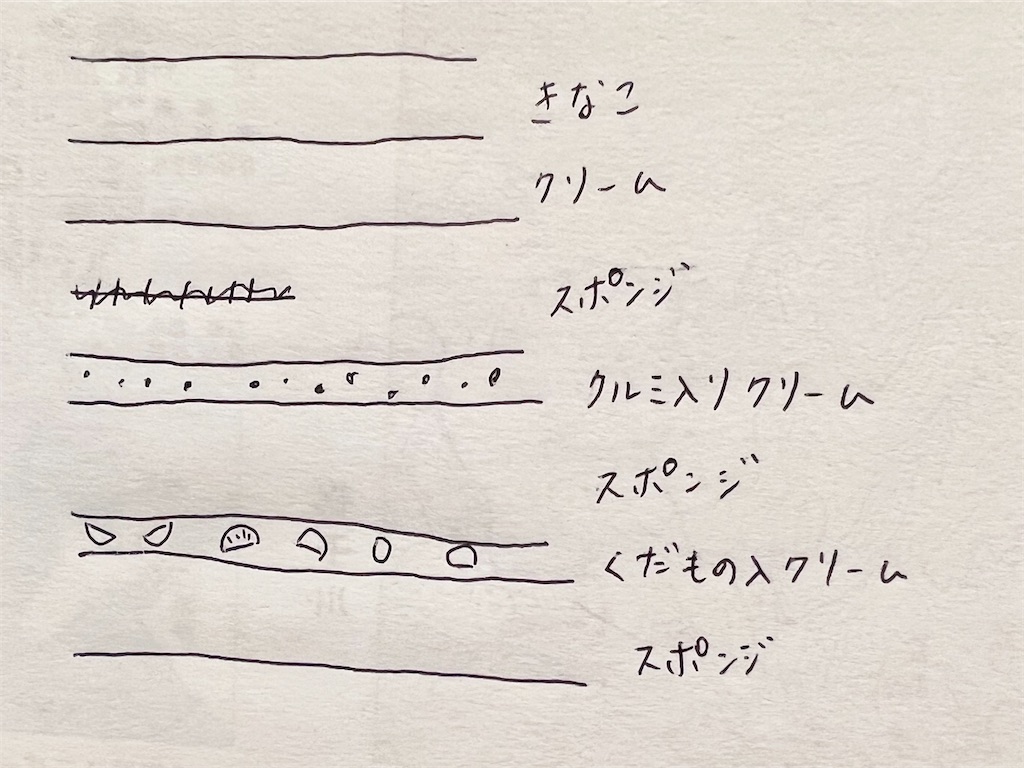 きなこ
クリーム
スポンジ
クルミ入りクリーム
スポンジ
くだもの入クリーム
スポンジ